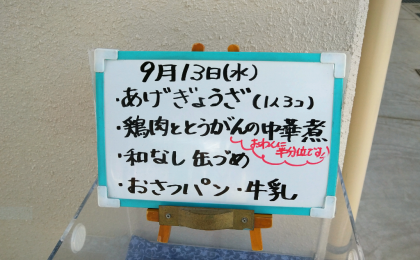 9月13日(水)
・あげぎょうざ(1人3コ)
・鶏肉ととうがんの中華煮
おわんに
半分位です
・和なし缶づめ
・おさつパン・牛乳